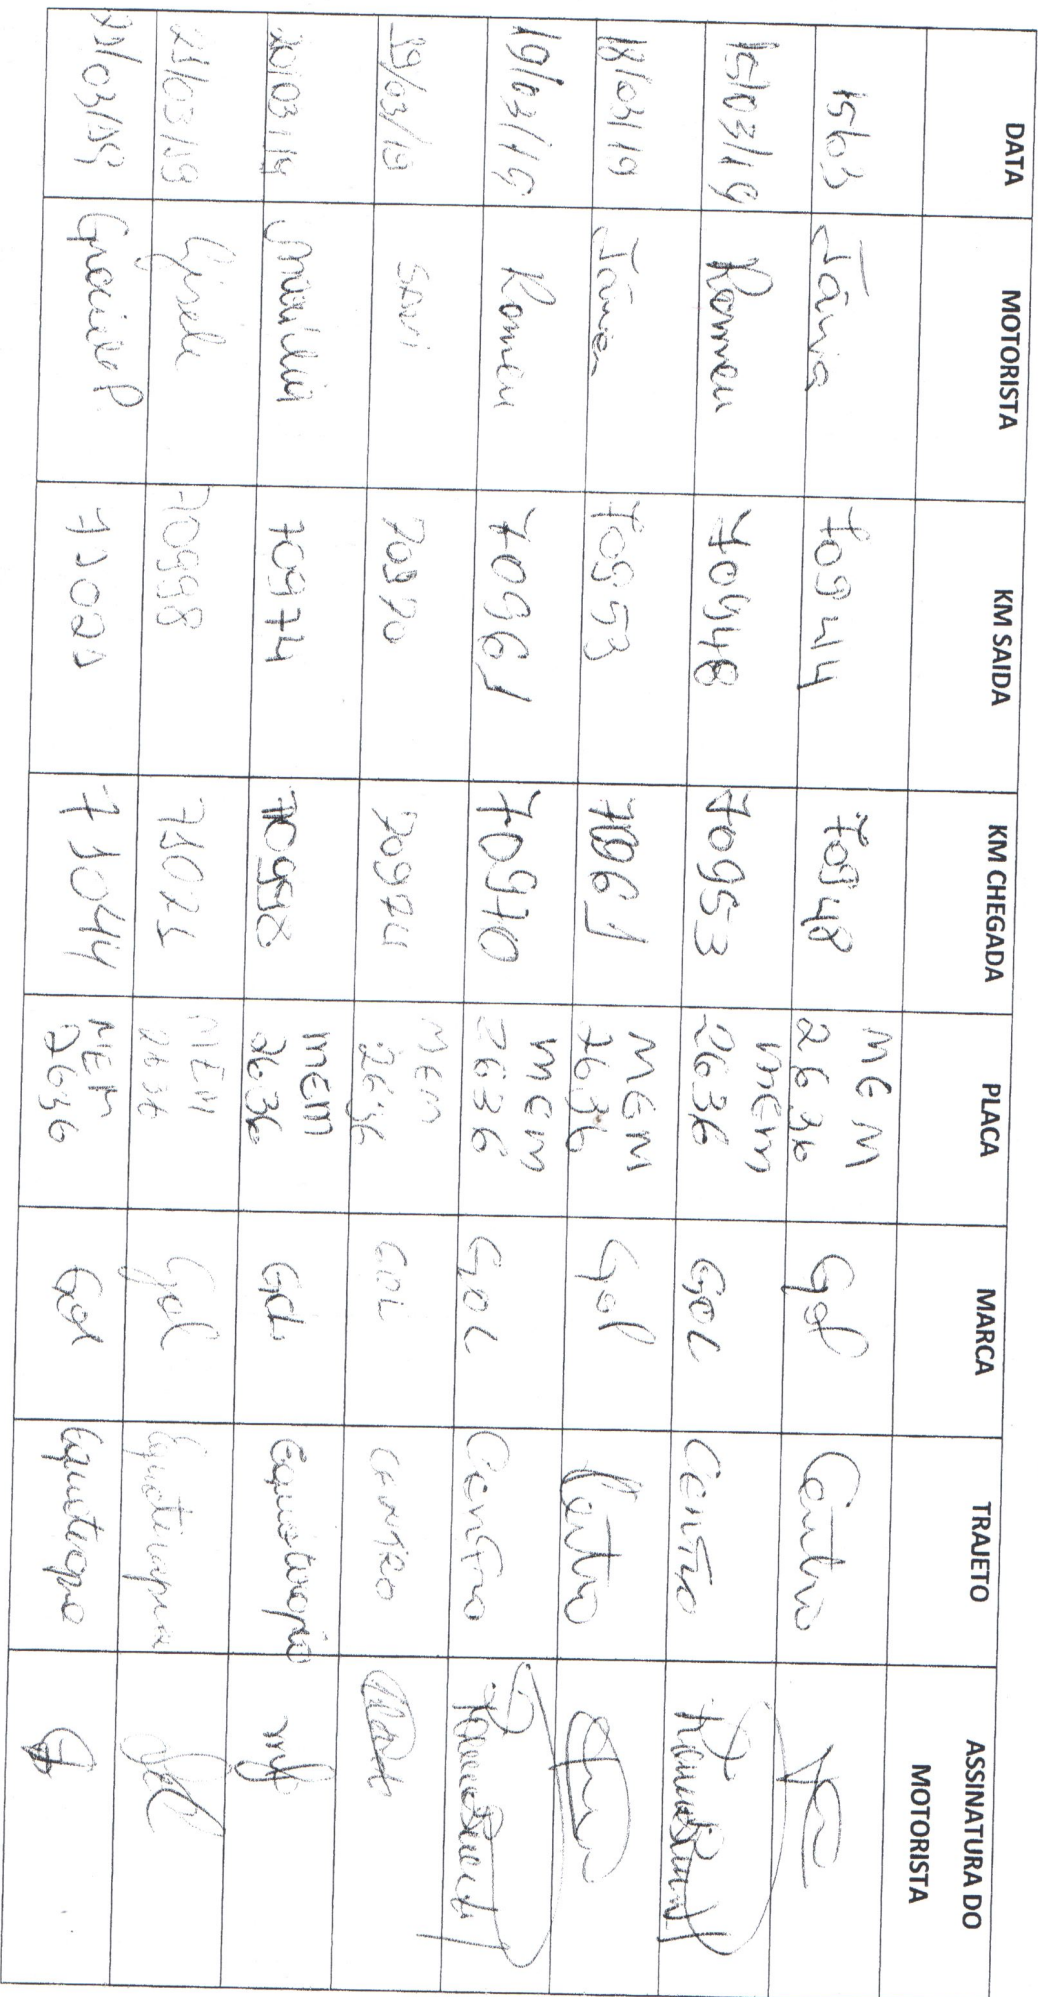 DATA MOTORISTA KM SAIDA KM CHEGADA PLACA MARCA TRAJETO ASSINATURA DO MOTORISTA
15/03 Tânia 70944 70948 MEM 2636 Gol Centro
15/03/19 Romeu 70948 70953 MEM 2636 GOL CENTRO
18/03/19 Tânia 70953 70961 MEM 2636 Gol Centro
19/03/19 Romeu 70961 70970 MEM 2636 GOL CENTRO
19/03/19 SAVI 70970 70974 MEM 2636 GOL CENTRO
20/03/19 70974 70998 MEM 2636 Gol Equoterapia
21/03/19 Gisele 70998 71021 MEM 2636 Gol Equoterapia
21/03/19 Graciele P. 71021 71044 MEM 2636 Gol Equoterapia